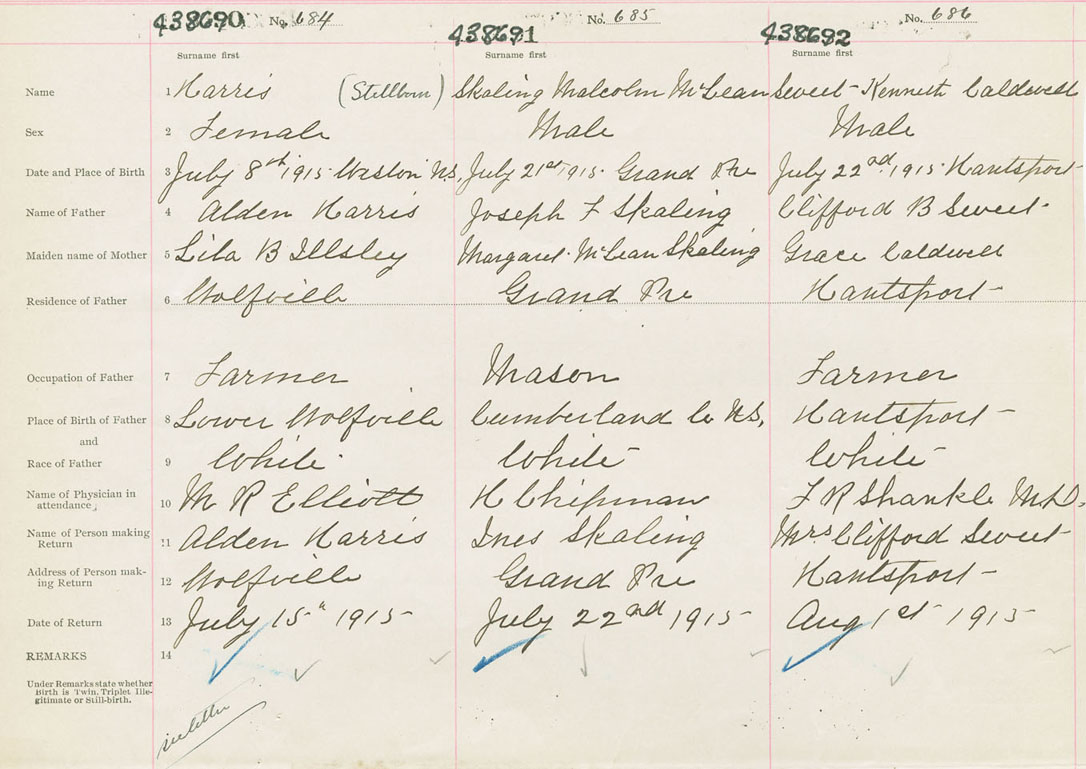 438690 No. 684 438691 No. 685 438692 No. 686
Surname first Surname first Surname first
Name 1 Harris (Stillborn) Skaling Malcolm McLean Sweet Kenneth Caldwell
Sex 2 Female Male Male
Date and Place of Birth 3 July 8th 1915 Weston N.S. July 21st 1915 Grand Pre July 22nd 1915 Hantsport
Name of Father 4 Alden Harris Joseph F Skaling Clifford B Sweet
Maiden name of Mother 5 Lila B Illsley Margaret McLean Skaling Grace Caldwell
Residence of Father 6 Wolfville Grand Pre Hantsport
Occupation of Father 7 Farmer Mason Farmer
Place of Birth of Father 8 Lower Wolfville Cumberland Co N.S. Hantsport
and
Race of Father 9 White White White
Name of Physician in
attendance, 10 M R Elliott H Chipman F R Shankle M.D.
Name of Person making
Return 11 Alden Harris Ines Skaling Mrs Clifford Sweet
Address of Person mak-
ing Return 12 Wolfville Grand Pre Hantsport
Date of Return 13 July 15th 1915 July 22nd 1915 Aug 1st 1915
REMARKS 14
Under Remarks state whether
Birth is Twin, Triplet Ille-
gitimate or Still-birth.